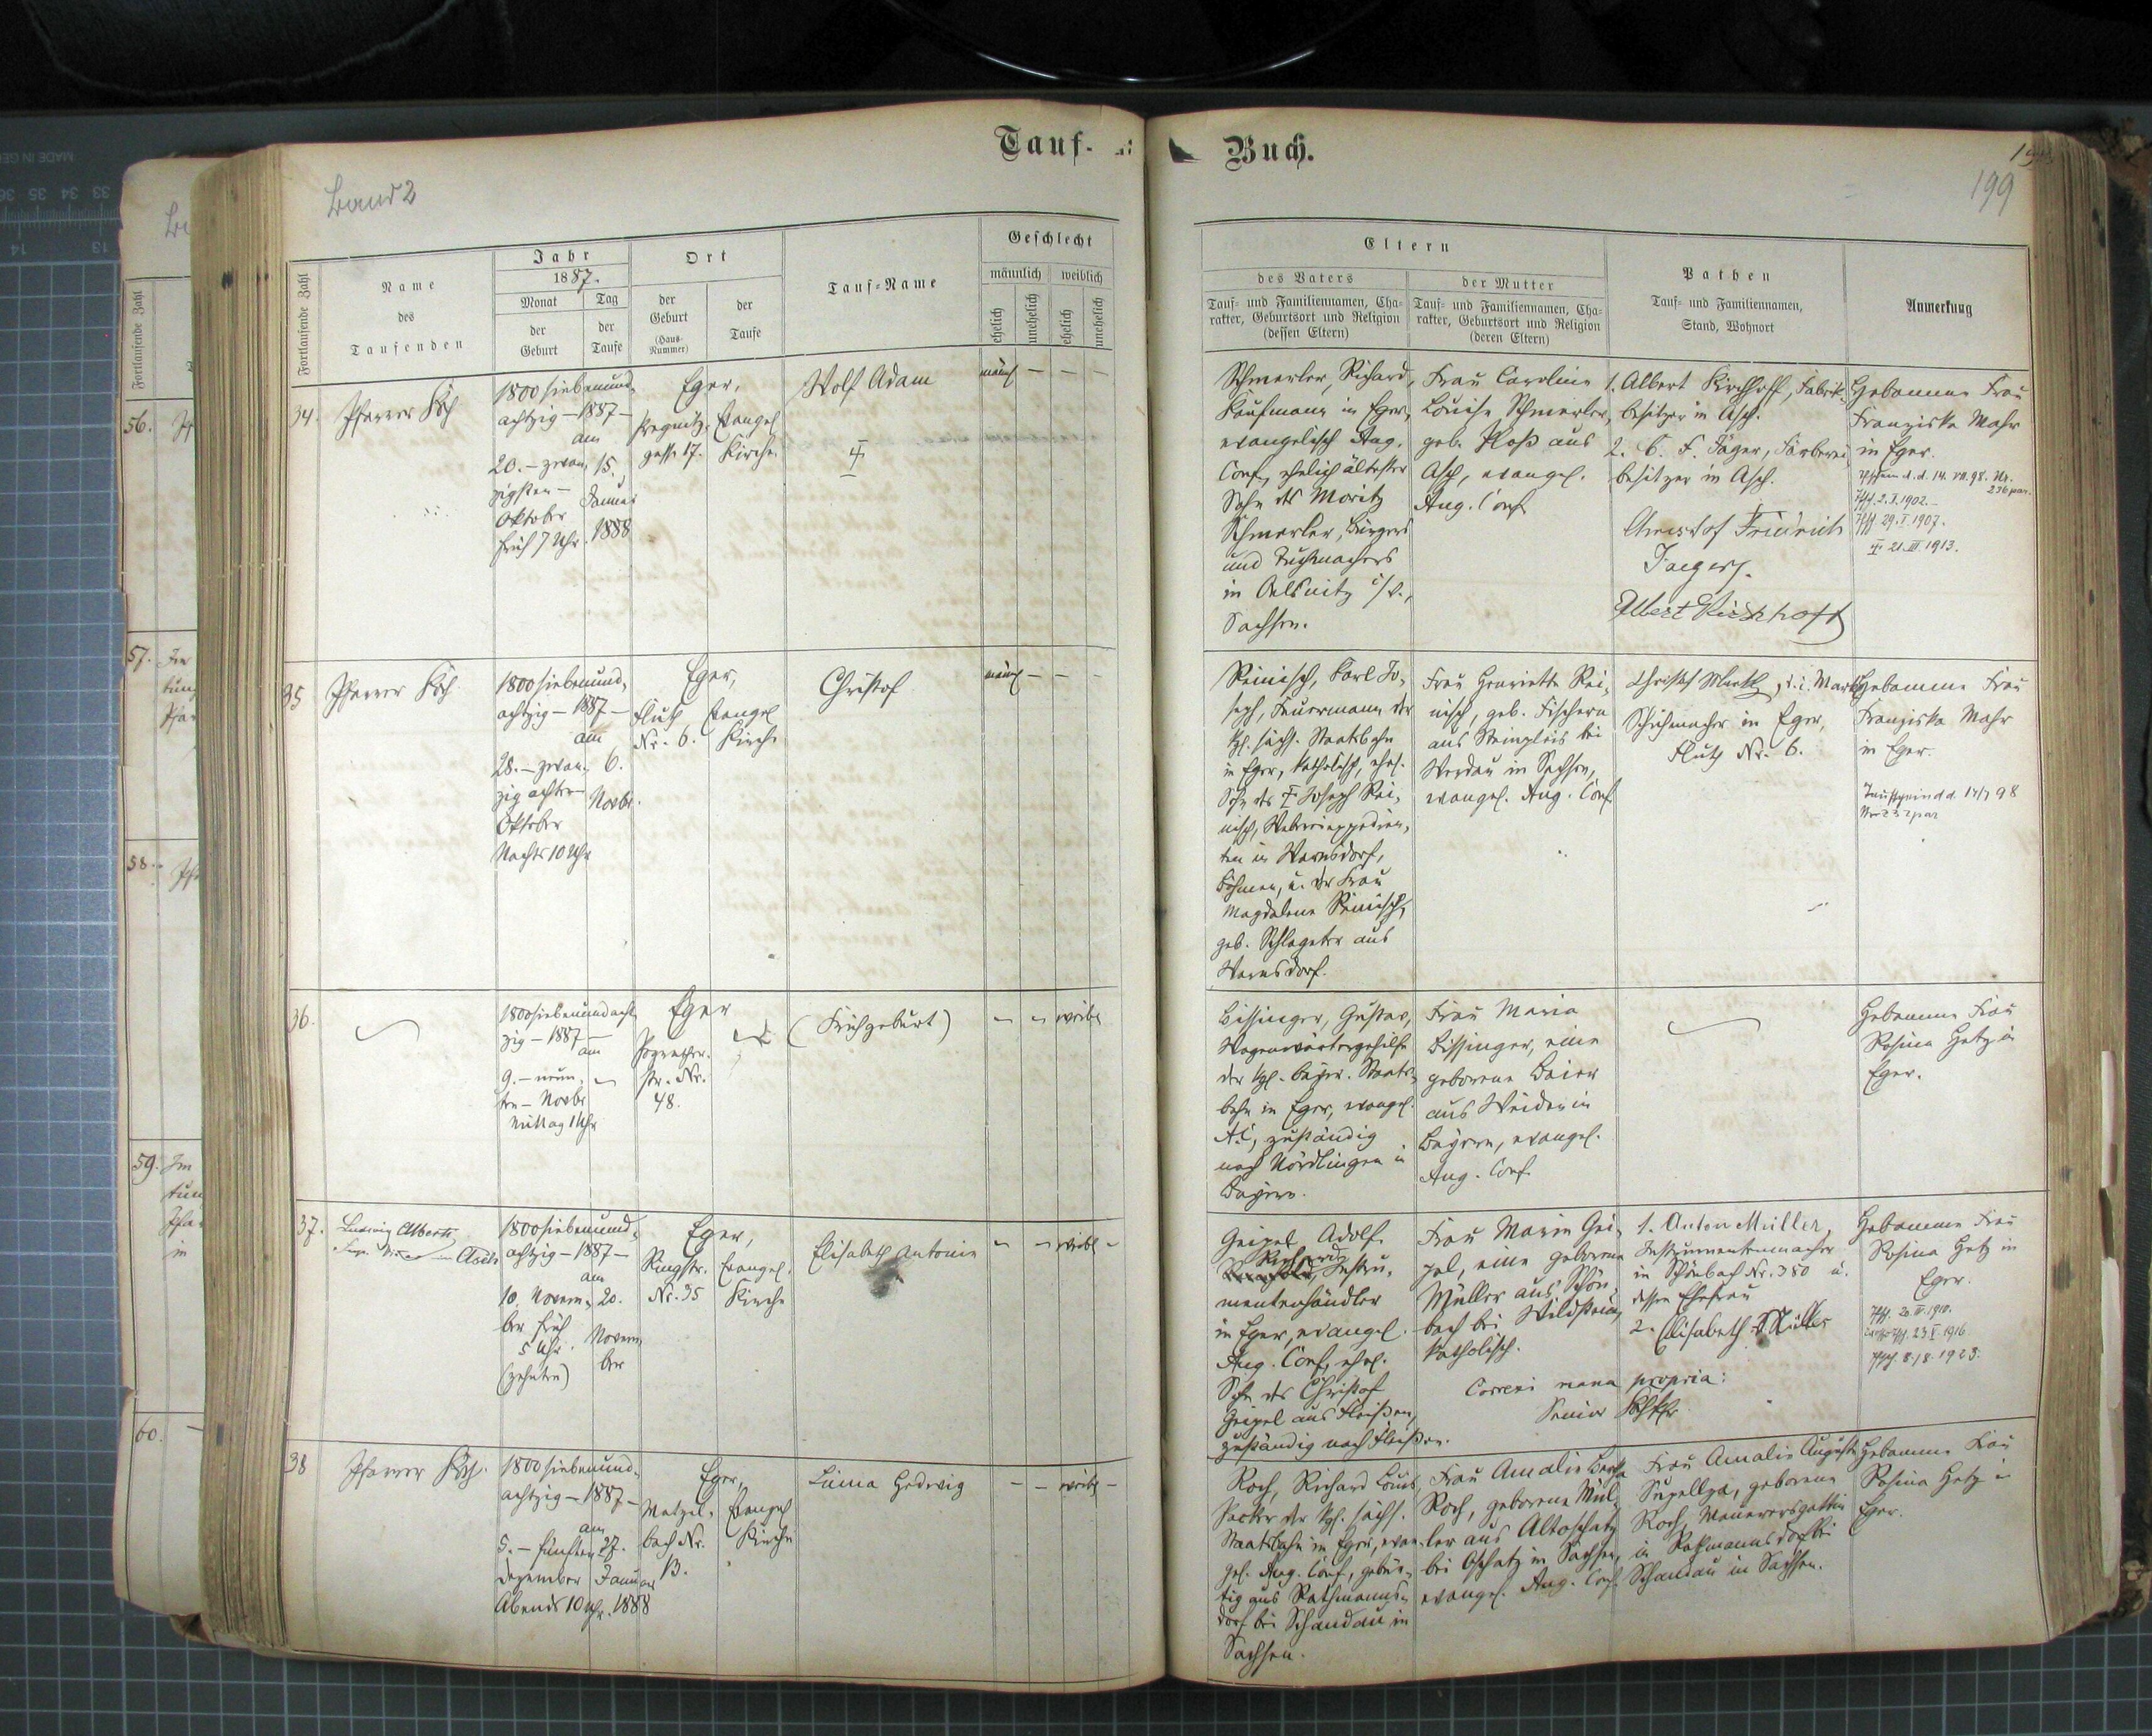 Tauf-
Buch.
Band 2
199
Fortlaufende Zahl
Name
des
Taufenden
Jahr
1887.
Monat
der
Geburt
Tag
der
Taufe
Ort
der
Geburt
(Haus-
Nummer)
der
Taufe
Tauf-Name
Geschlecht
männlich
weiblich
ehelich
unehelich
ehelich
unehelich
Eltern
des Vaters
Tauf- und Familiennamen, Cha-
rakter, Geburtsort und Religion
(dessen Eltern)
der Mutter
Tauf- und Familiennamen, Cha-
rakter, Geburtsort und Religion
(deren Eltern)
Pathen
Tauf- und Familiennamen,
Stand, Wohnort
Anmerkung
34.
Pfarrer Koch
1800 siebenund-
achtzig – 1887 –
am
20. – zwan-
zigsten –
Oktober
früh 7 Uhr.
15.
Januar
1888
Eger,
gasse 17.
Evangel
Kirche
Wolf Adam
männl
Schmerler, Richard,
Kaufmann in Eger,
evangelisch Aug.
Conf, ehelich ältester
Sohn des Moritz
Schmerler, Bürgers
und Tuchmachers
in Oelsnitz i/V.,
Sachsen.
Frau Caroline
Louise Schmerler,
geb. Ploß aus
Asch, evangel.
Aug. Conf
1. Albert Kirchhoff, Fabrik-
besitzer in Asch.
2. C. F. Jäger, Färberei-
besitzer in Asch.
Christof Friedrich
Jaeger.
Albert Kirchhoff
Hebamme Frau
Franziska Mahr
in Eger.
d. d. 14. VII. 98. Nr.
236 par.
2. I. 1902.
29. I. 1907.
21. III. 1913.
35
Pfarrer Koch
1800 siebenund-
achtzig – 1887 –
am
28. – zwan-
zig achten
Oktober
Nachts 10 Uhr
6.
Novbr.
Eger,
Nr. 6.
Evangel
Kirche
Christof
männl
Reinisch, Karl Jo-
seph, Feuermann der
kgl. sächs. Staatsbahn
in Eger, katholisch, ehel.
Sohn des † Joseph Rei-
nisch,
in Warnsdorf,
Böhmen, u. der Frau
Magdalena Reinisch,
geb. Schlageter aus
Warnsdorf.
Frau Henriette Rei-
nisch, geb. Fischern
aus Steinpleis bei
Werdau in Sachsen,
evangel. Aug. Conf
Schuhmacher in Eger,
Nr. 6.
Hebamme Frau
Franziska Mahr
in Eger.
Taufschein dd. 14/7 98
36.
1800 siebenundacht-
zig – 1887 –
am
9. – neun-
ten – Novbr
Mittag 1 Uhr
Eger
str. Nr.
48.
(Frühgeburt)
weibl
Bissinger, Gustav,
Wagenwärtergehilfe
der kgl. bayer. Staats-
bahn in Eger, evangel.
A.C, zuständig
nach Nördlingen in
Bayern.
Frau Maria
Bissinger, eine
geborene Baier
aus Weiden in
Bayern, evangel.
Aug. Conf.
Hebamme Frau
Rosina Hetz in
Eger.
37.
Ludwig Alberti,
in Asch
1800 siebenund-
achtzig – 1887 –
am
10. Novem-
ber früh
5 Uhr.
(zehnten)
20.
Novem-
ber
Eger,
Ringstr.
Nr. 35
Evangel.
Kirche
Elisabeth Antonie
weibl
Geipel Adolf
Richard, Instru-
mentenhändler
in Eger, evangel.
Aug. Conf, ehel.
Sohn des Christof
Geipel aus Fleißen,
zuständig nach Fleißen.
Frau Marie Gei-
pel, eine geborene
Müller aus Schön-
bach bei Wildstein,
katholisch.
Correxi manu propria:
Senior
1. Anton Müller,
Instrumentenmacher
in Schönbach Nr. 350 u.
dessen Ehefrau
2. Elisabeth Müller
Hebamme Frau
Rosina Hetz in
Eger.
20. IV. 1910.
23. V. 1916
8./8. 1923.
38
Pfarrer Koch.
1800 siebenund-
achtzig – 1887 –
am
5. – fünften
Dezember
Abends 10 Uhr.
27.
Januar
1888
Eger,
Matzel-
bach Nr.
13.
Evangel
Kirche
Linna Hedwig
weibl
Roch, Richard Louis,
Packer der kgl. sächs.
Staatsbahn in Eger, evan-
gel. Aug. Conf, gebür-
tig aus Rathmanns-
dorf bei Schandau in
Sachsen.
Frau Amalie Bertha
Roch, geborene Mül-
ler aus Altoschatz
bei Oschatz in Sachsen,
evangel. Aug. Conf.
Frau Amalie Auguste
geborene
Roch, Maurersgattin
in Rathmannsdorf bei
Schandau in Sachsen.
Hebamme Frau
Rosina Hetz in
Eger.
56.
57.
58.
59.
60.